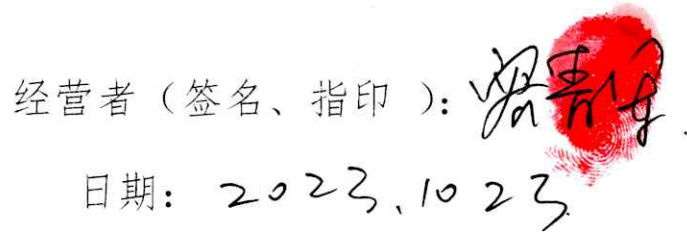 经营者（签名、指印 ）：
日期：2023.10 23